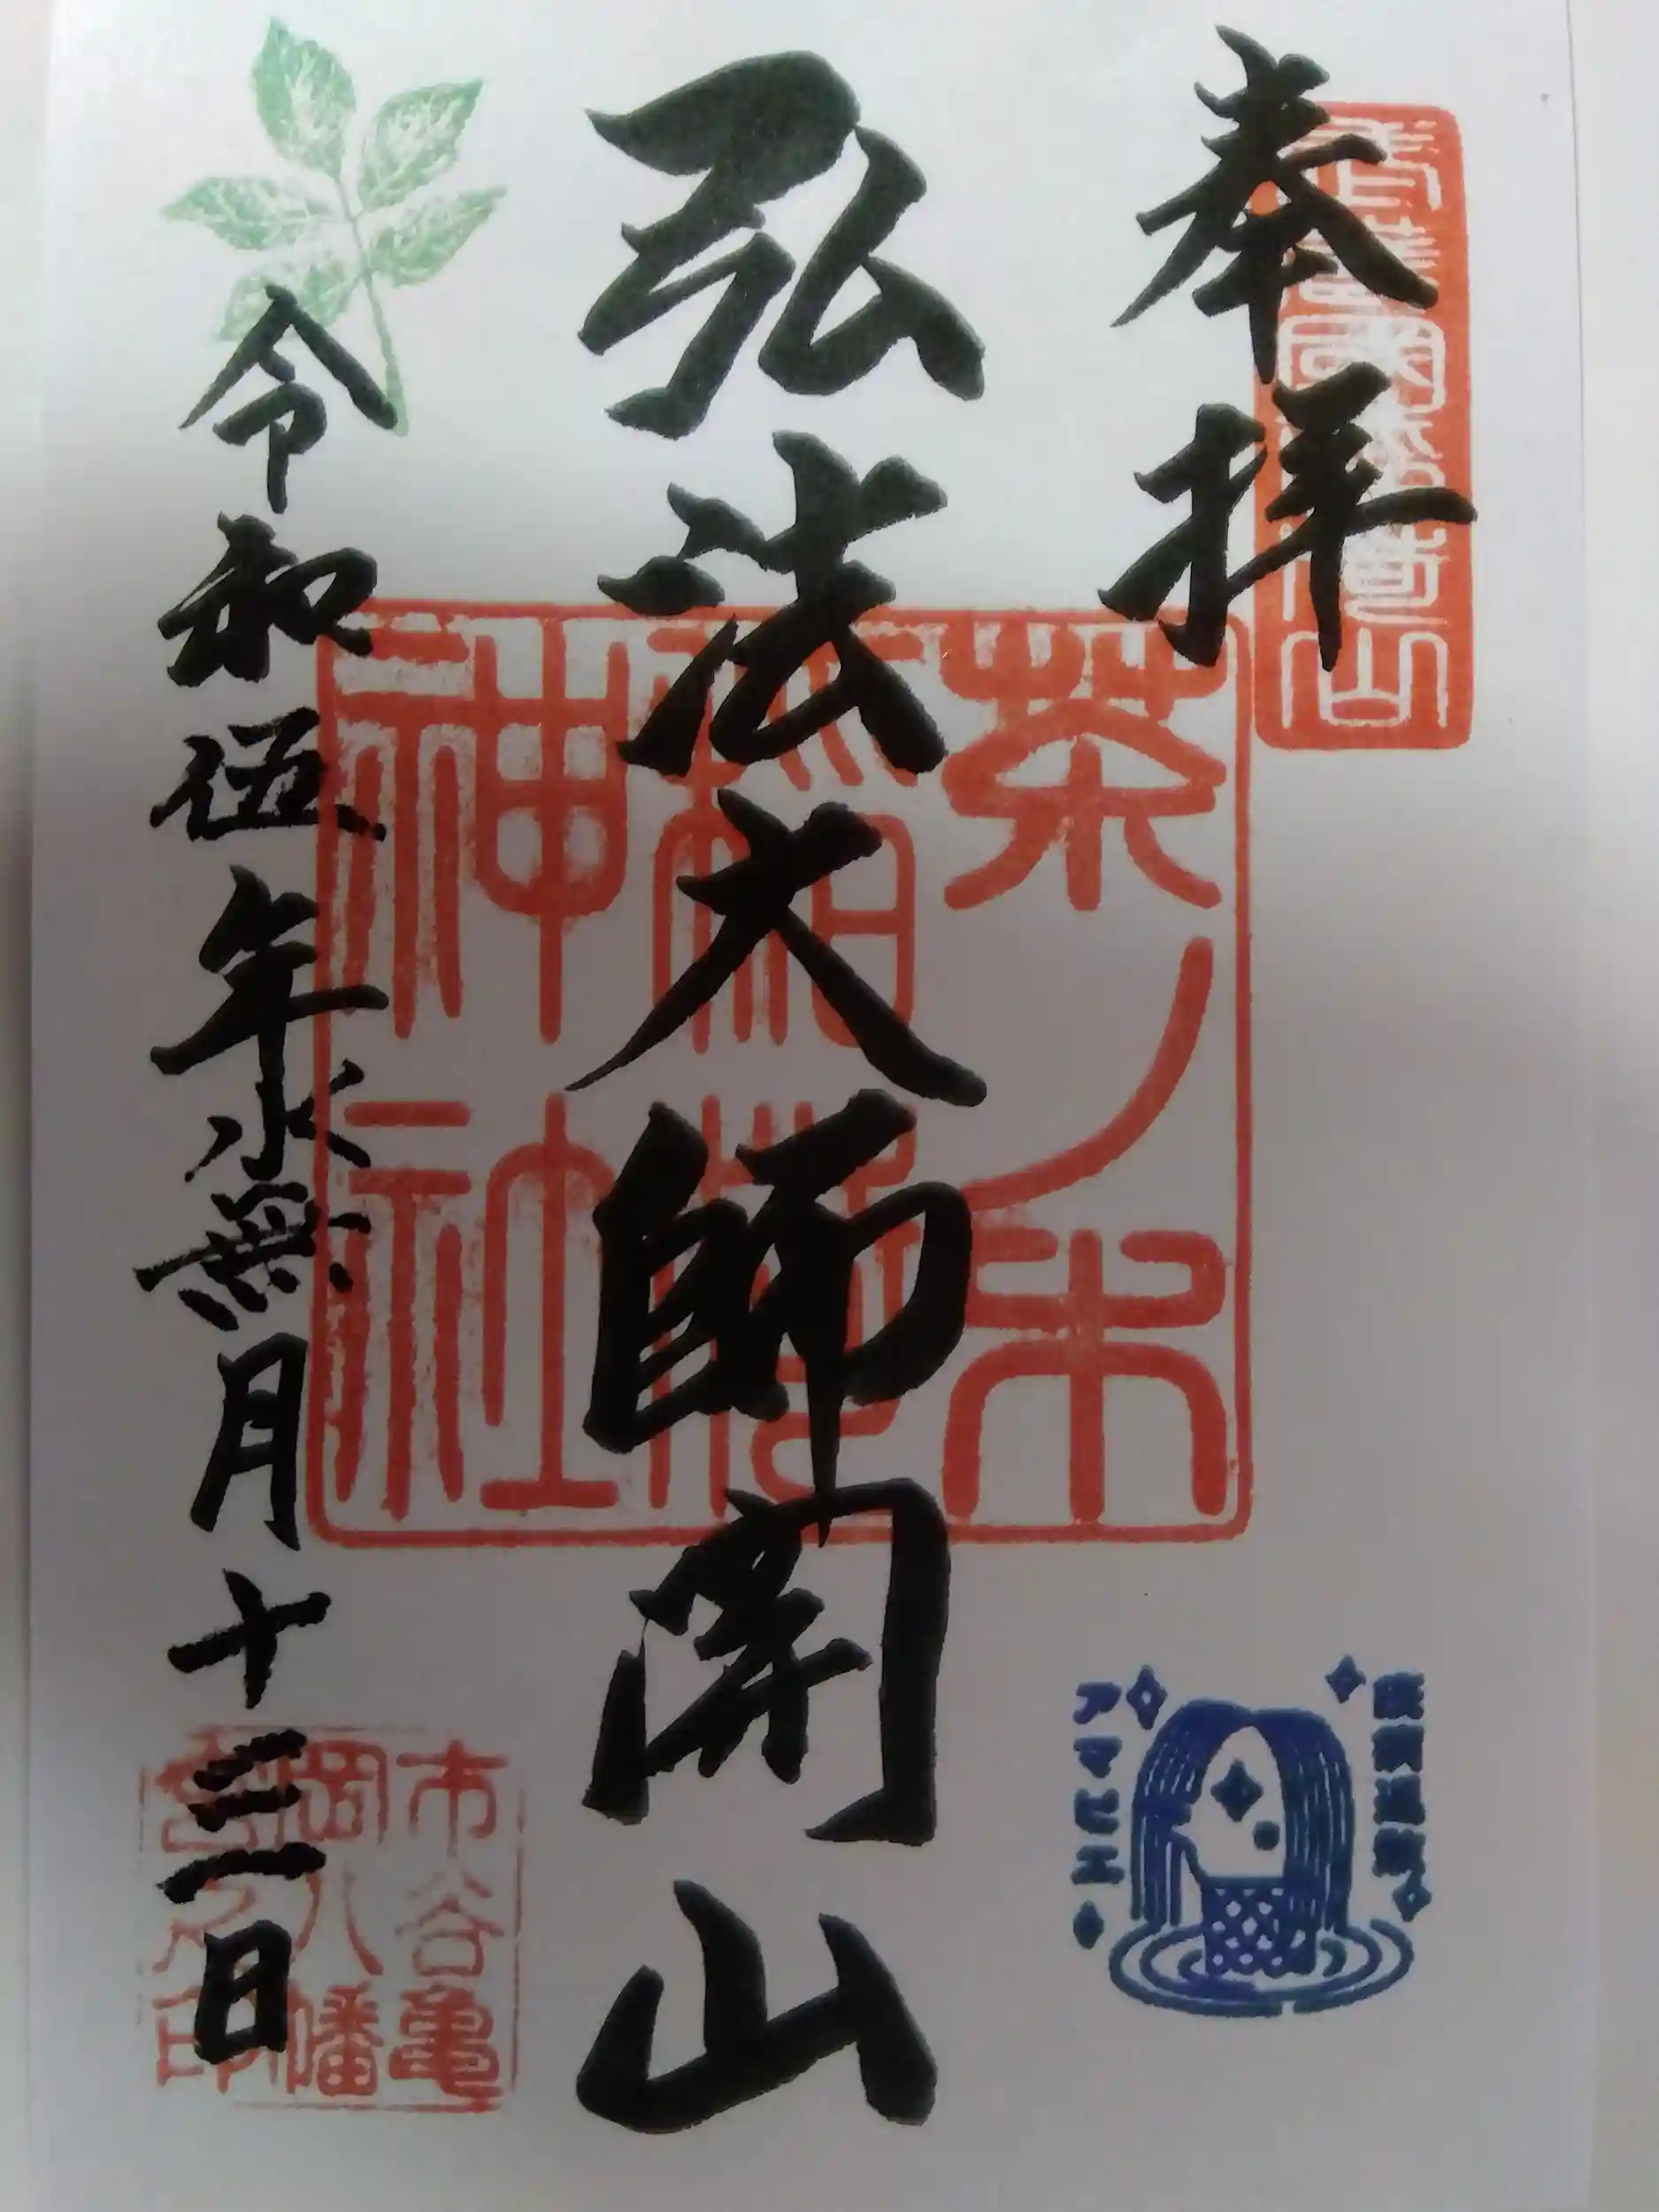 奉拝
疫病退散
アマビエ
茶ノ木
稲荷
神社
弘法大師開山
令和伍年水無月十三日
市谷亀
岡八幡
宮之印